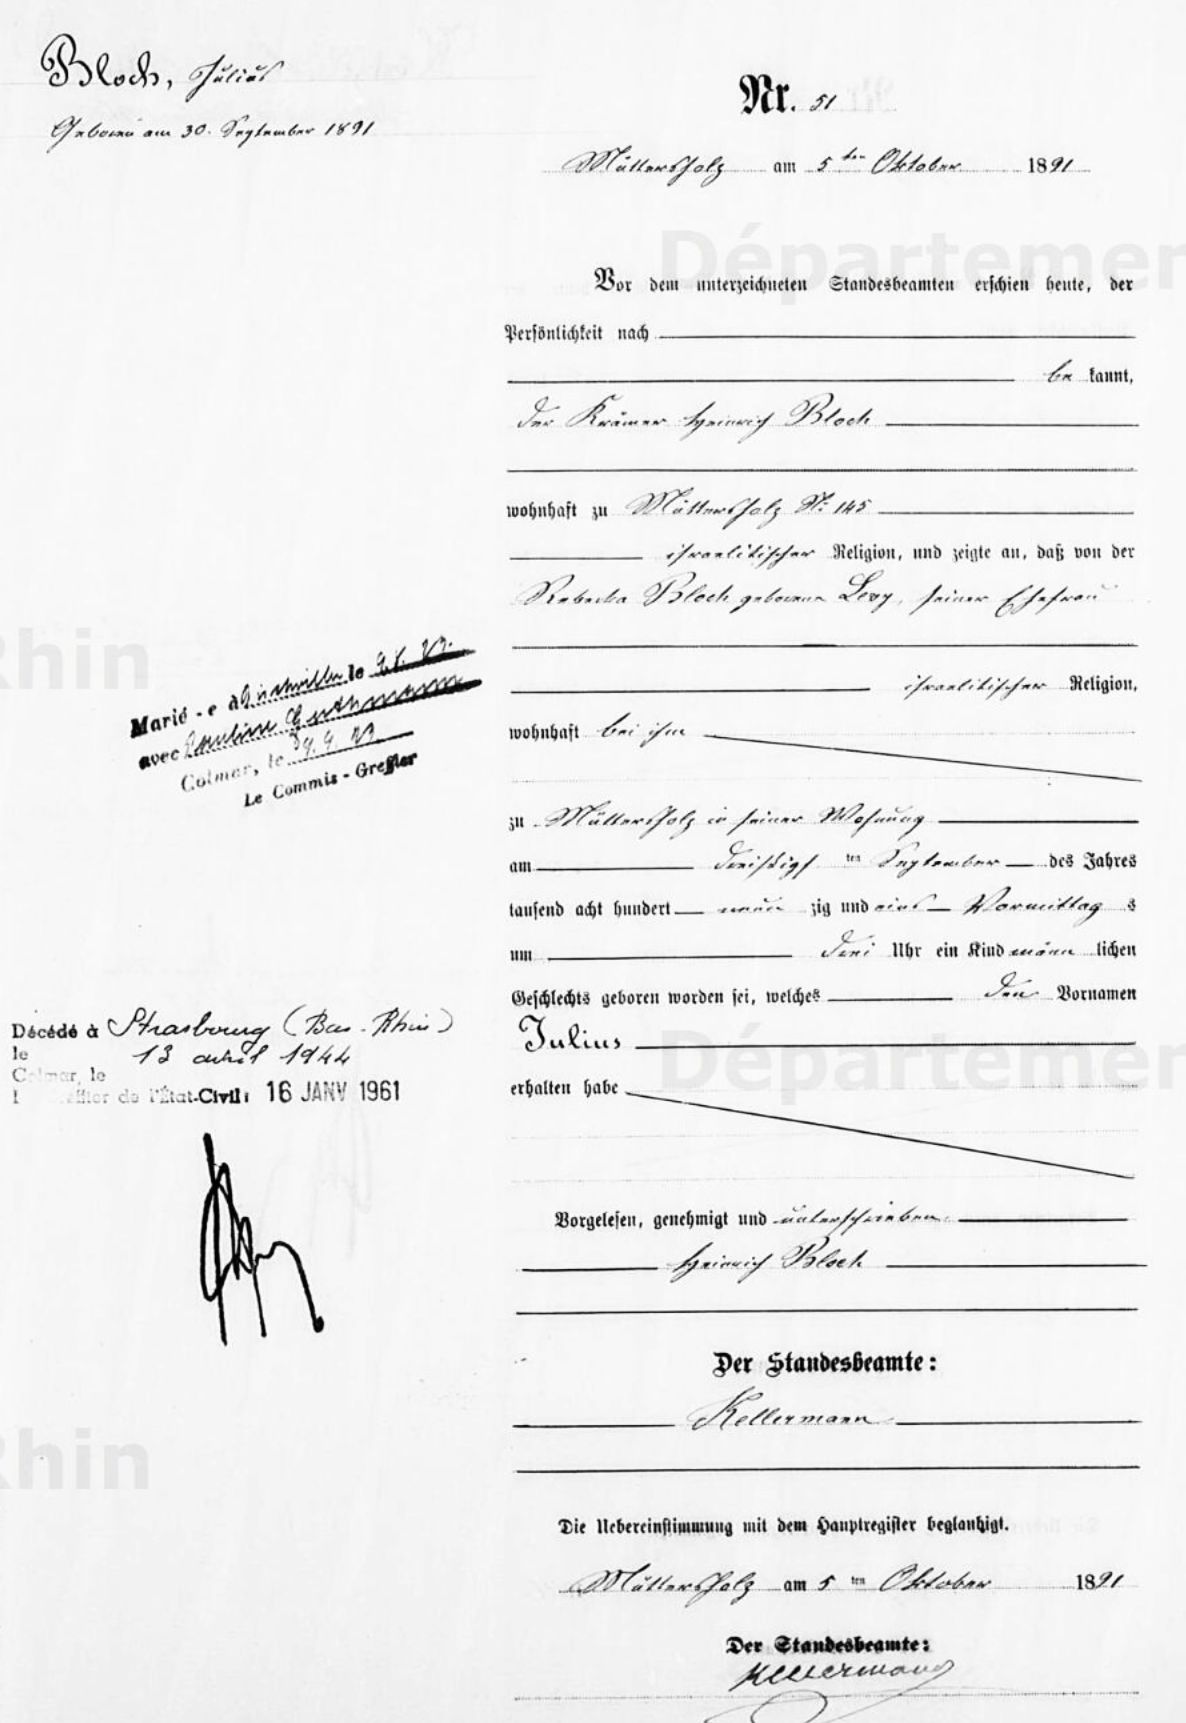 Bloch, Julius
Geboren am 30. September 1891
Nr. 51
Müttersholz am 5ten Oktober 1891
Vor dem unterzeichneten Standesbeamten erschien heute, der
Persönlichkeit nach
be kannt,
der Krämer Heinrich Bloch
wohnhaft zu Müttersholz No 145
israelitischer Religion, und zeigte an, daß von der
Rebecka Bloch geborene Levy, seiner Ehefrau
israelitischer Religion,
wohnhaft bei ihm
zu Müttersholz in seiner Wohnung
am dreißigs ten September des Jahres
tausend acht hundert neun zig und eins Vormittag s
um drei Uhr ein Kind männ lichen
Geschlechts geboren worden sei, welches den Vornamen
Julius
erhalten habe
Vorgelesen, genehmigt und unterschrieben
Heinrich Bloch
Der Standesbeamte:
Kellermann
Die Uebereinstimmung mit dem Hauptregister beglaubigt.
Müttersholz am 5 ten Oktober 1891
Der Standesbeamte:
Kellermann
Marié - e à le
avec
Colmar, le
Le Commis - Greffier
Décédé à Strasbourg (Bas-Rhin)
le 13 avril 1944
Colmar, le
l effier de l'État-Civil: 16 JANV 1961
Départemen
Rhin
Départemen
Rhin